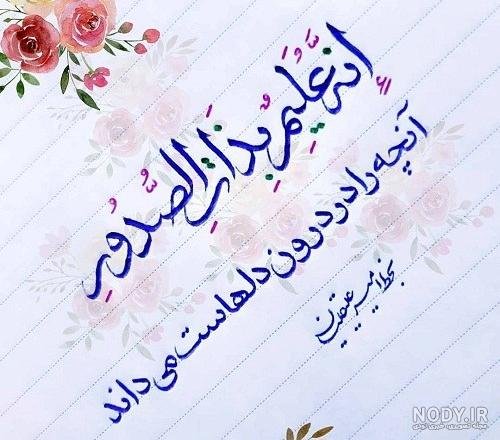 إِنَّهُ عَلِيمٌ بِذَاتِ الصُّدُورِ
آنچه را در درون دلهاست می داند
بخط امیر عیقرین
NODY.IR